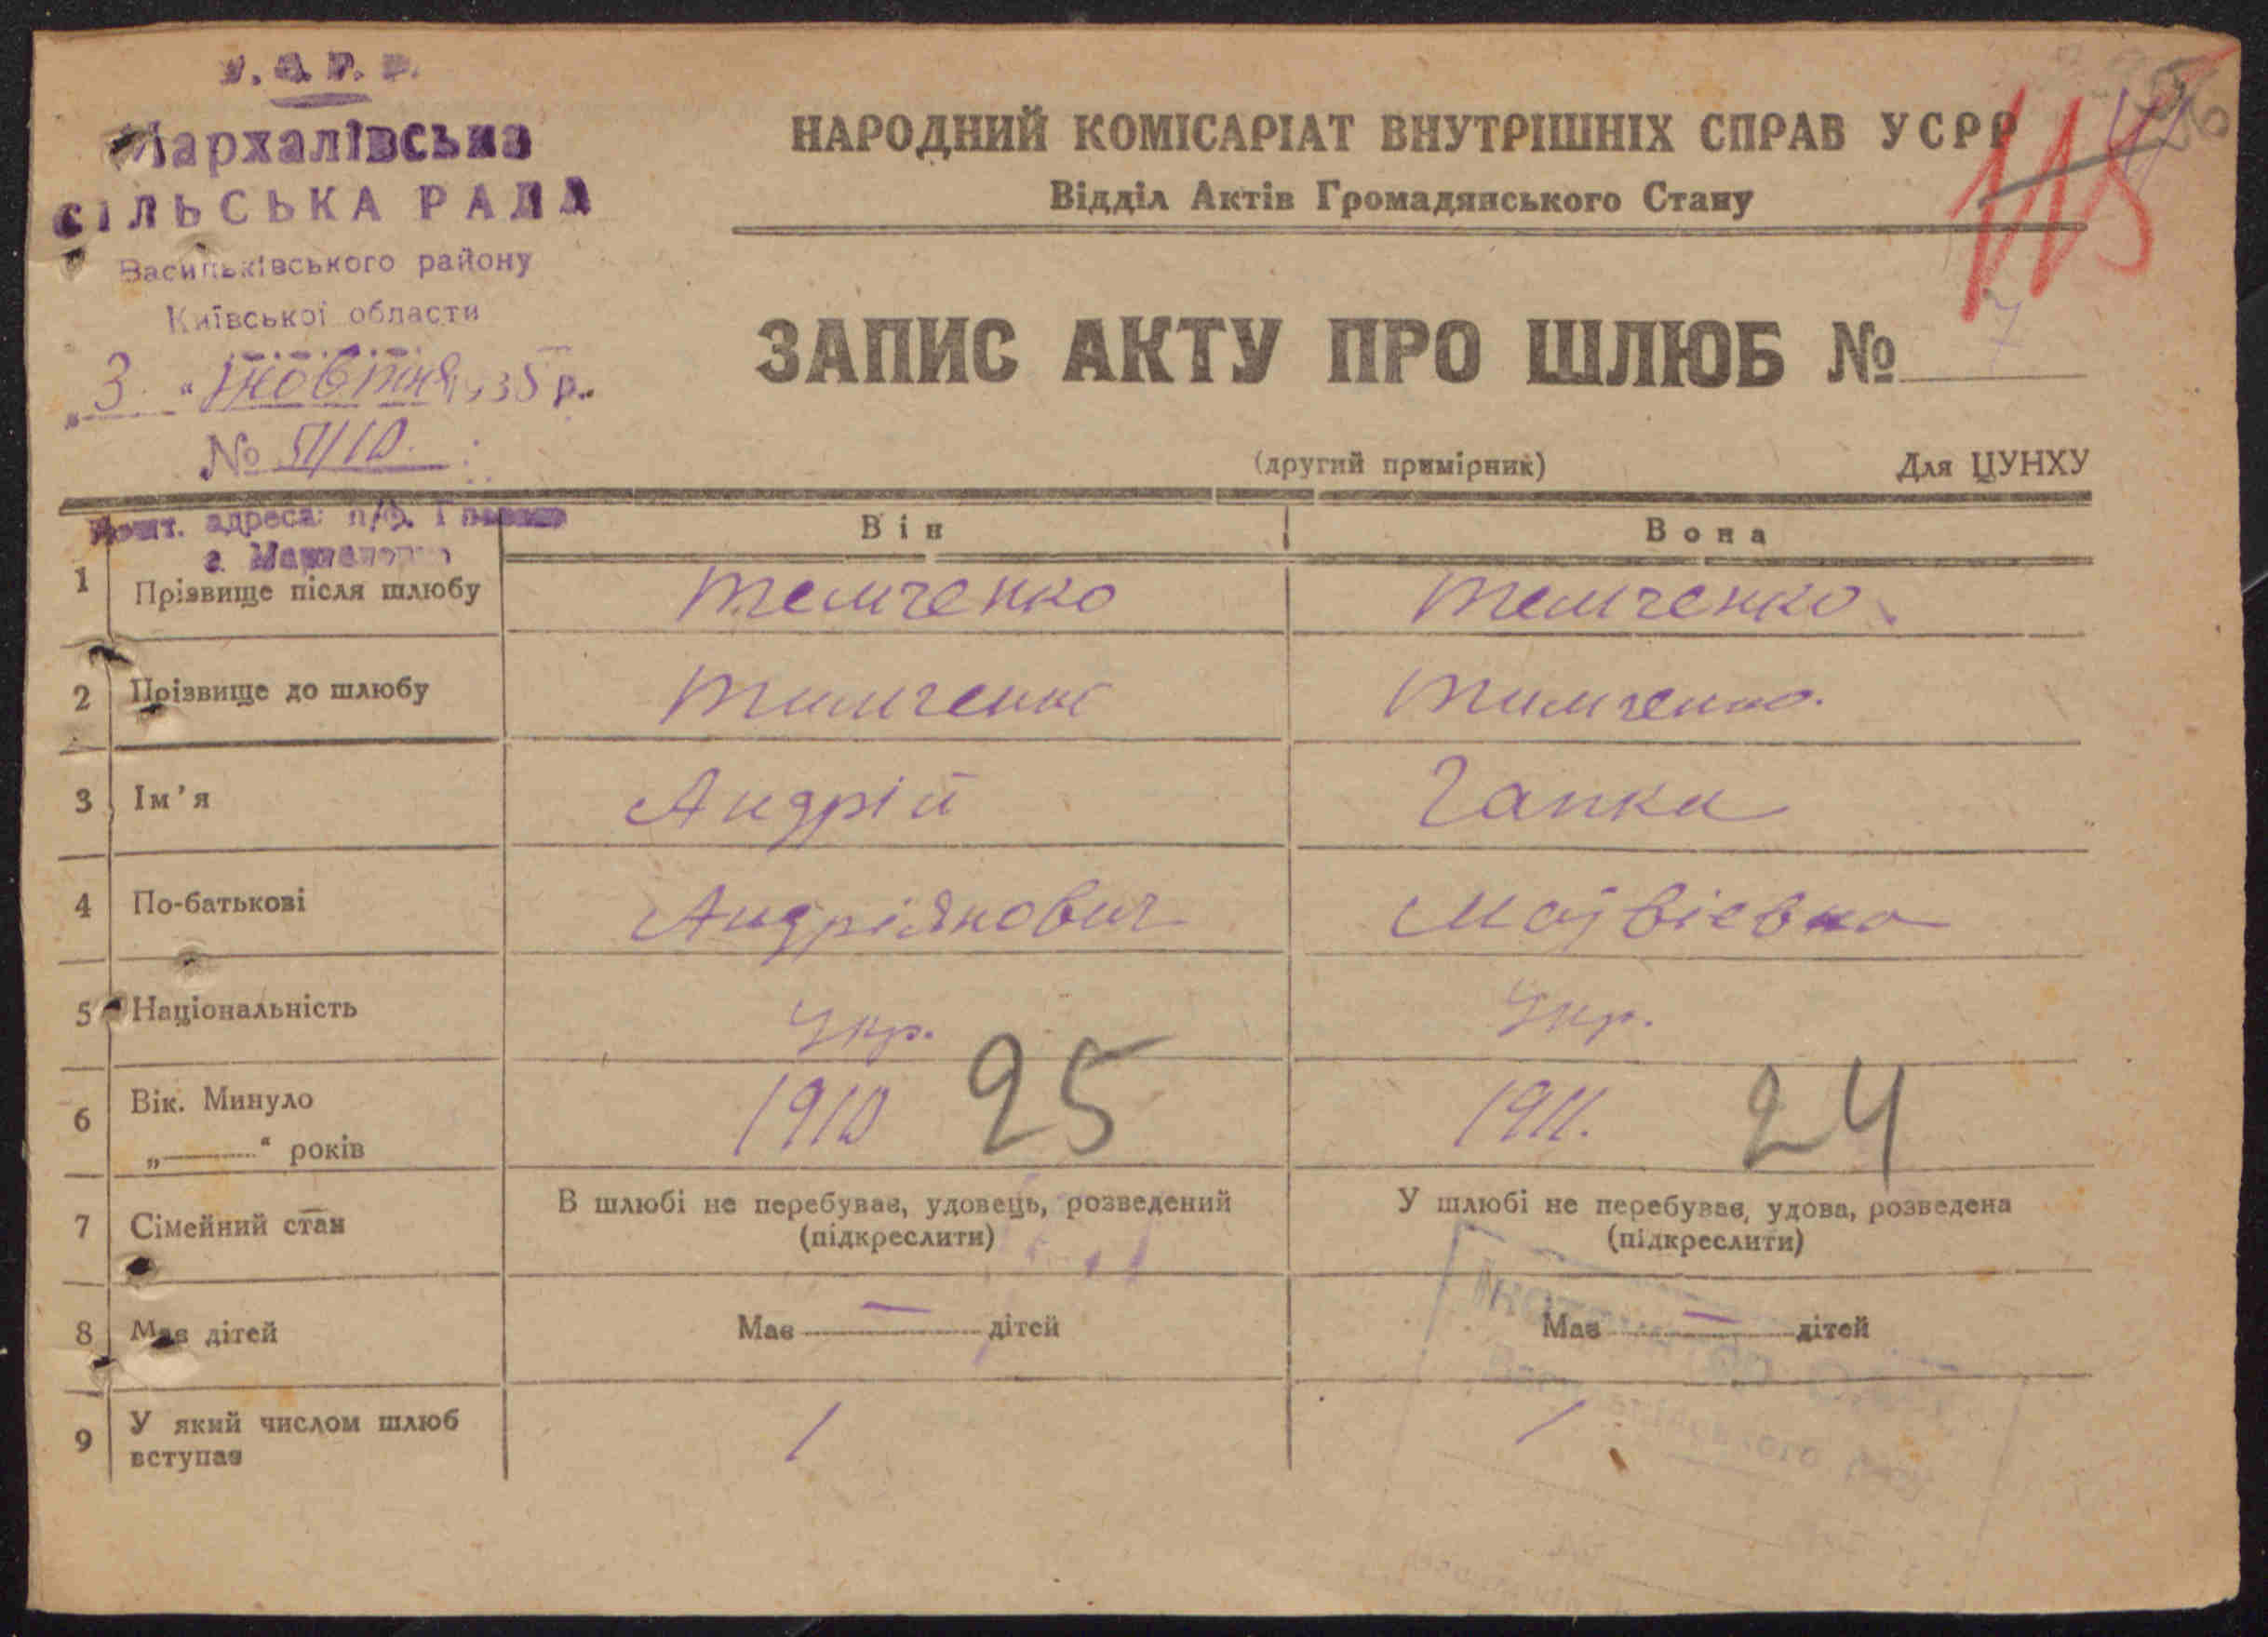 У.С.Р.Р.
Мархалівська
СІЛЬСЬКА РАДА
Васильківського району
Київської области
„3“ жовтня 1935 р.
№ 51/10.
Пошт. адреса: п/в.
с. Мархалівка
НАРОДНИЙ КОМІСАРІАТ ВНУТРІШНІХ СПРАВ УСРР
Відділ Актів Громадянського Стану
115
ЗАПИС АКТУ ПРО ШЛЮБ № 7
(другий примірник) Для ЦУНХУ
Він Вона
1 Прізвище після шлюбу Темченко Темченко.
2 Прізвище до шлюбу Тимченко Тимченко.
3 Ім’я Андрій Гапка
4 По-батькові Андріянович Матвієвна
5 Національність Укр. Укр.
6 Вік. Минуло 1910 25 1911. 24
„———“ років
7 Сімейний стан В шлюбі не перебуває, удовець, розведений У шлюбі не перебуває, удова, розведена
(підкреслити) (підкреслити)
8 Має дітей Має — дітей Має — дітей
9 У який числом шлюб 1 1
вступає